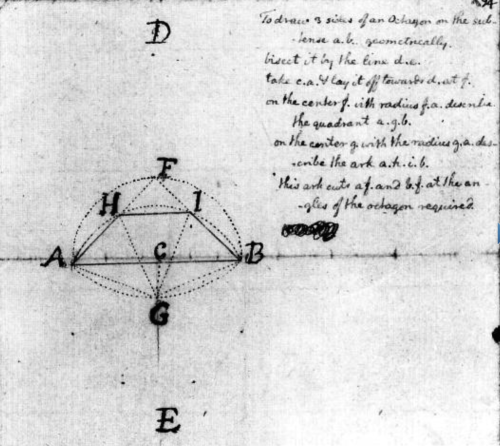 D
To draw 3 sides of an Octagon on the sub-
tense a.b. geometrically.
bisect it by the line d.e.
take c.a. & lay it off towards d. at f.
on the center f. with radius f.a. describe
the quadrant a.g.b.
on the center g. with the radius g.a. des-
-cribe the ark a.h.i.b.
this ark cuts a.f. and b.f. at the an-
-gles of the octagon required.
F
H I
A C B
G
E